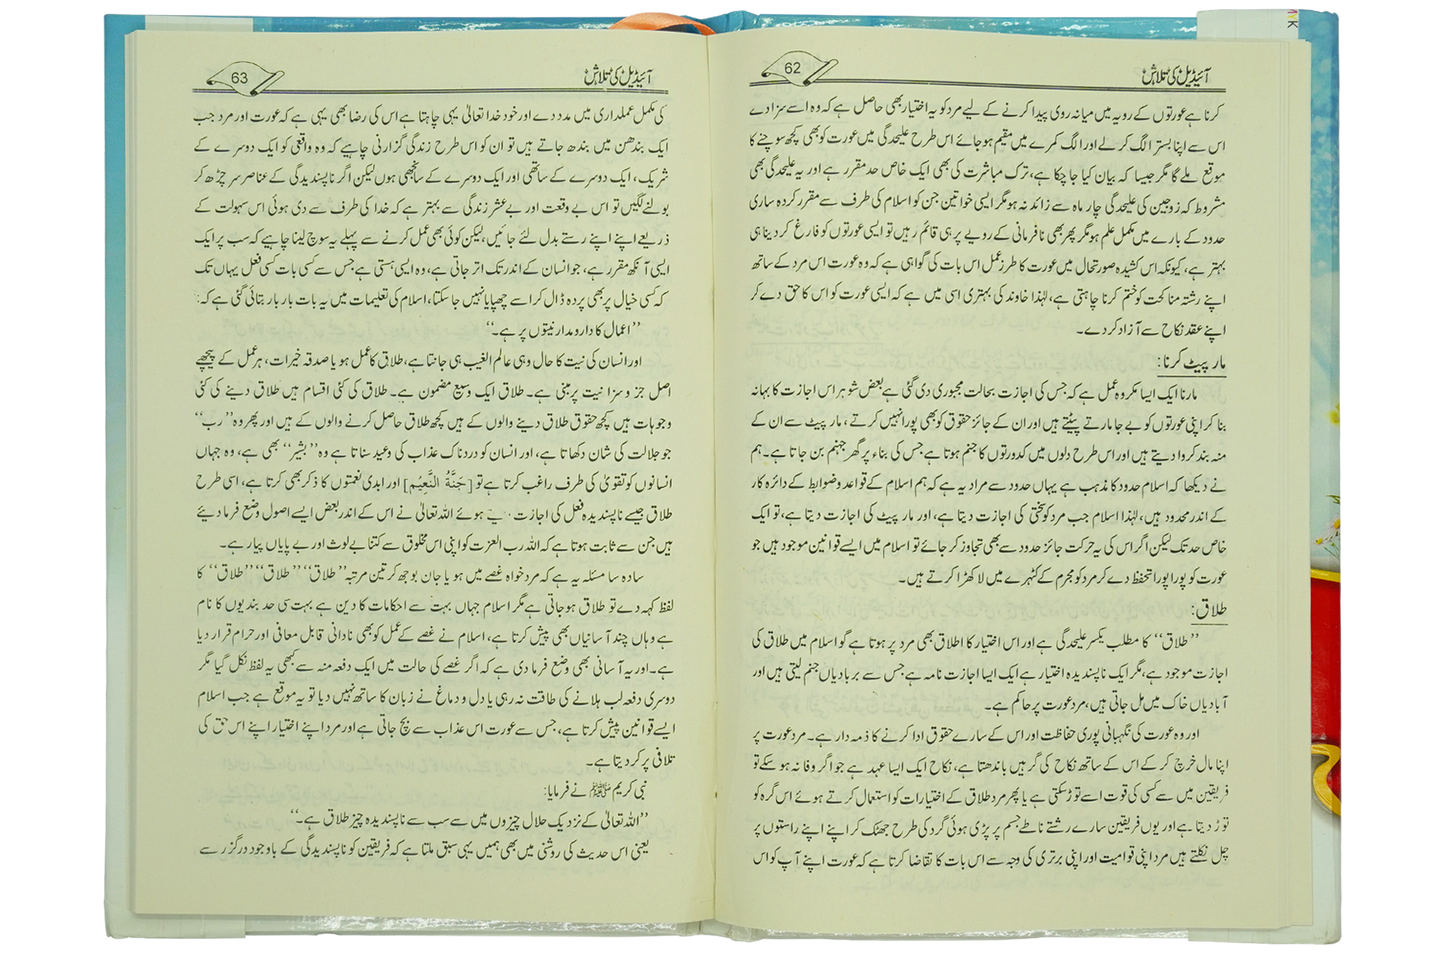 آئیڈیل کی تلاش
62
کرنا ہے عورتوں کے رویہ میں میانہ روی پیدا کرنے کے لیے مرد کو یہ اختیار بھی حاصل ہے کہ وہ اسے سزا دے
اس سے اپنا بستر الگ کر لے اور الگ کمرے میں مقیم ہو جائے اس طرح علیحدگی میں عورت کو بھی کچھ سوچنے کا
موقع ملے گا مگر جیسا کہ بیان کیا جا چکا ہے، ترک مباشرت کی بھی ایک خاص حد مقرر ہے اور یہ علیحدگی بھی
مشروط کہ زوجین کی علیحدگی چار ماہ سے زائد نہ ہو مگر ایسی خواتین جن کو اسلام کی طرف سے مقرر کردہ ساری
حدود کے بارے میں مکمل علم ہو مگر پھر بھی نافرمانی کے رویے پر ہی قائم رہیں تو ایسی عورتوں کو فارغ کر دینا ہی
بہتر ہے، کیونکہ اس کشیدہ صورتحال میں عورت کا طرز عمل اس بات کی گواہی ہے کہ وہ عورت اس مرد کے ساتھ
اپنے رشتہ مناکحت کو ختم کرنا چاہتی ہے، لہٰذا خاوند کی بہتری اسی میں ہے کہ ایسی عورت کو اس کا حق دے کر
اپنے عقد نکاح سے آزاد کر دے۔
مار پیٹ کرنا:
مارنا ایک ایسا مکروہ عمل ہے کہ جس کی اجازت بحالت مجبوری دی گئی ہے بعض شوہر اس اجازت کا بہانہ
بنا کر اپنی عورتوں کو بے جا مارتے پیٹتے ہیں اور ان کے جائز حقوق کو بھی پورا نہیں کرتے، مار پیٹ سے ان کے
منہ بند کروا دیتے ہیں اور اس طرح دلوں میں کدورتوں کا جنم ہوتا ہے جس کی بناء پر گھر جہنم بن جاتا ہے۔ ہم
نے دیکھا کہ اسلام حدود کا مذہب ہے یہاں حدود سے مراد یہ ہے کہ ہم اسلام کے قواعد و ضوابط کے دائرہ کار
کے اندر محدود ہیں، لہٰذا اسلام جب مرد کو سختی کی اجازت دیتا ہے، اور مار پیٹ کی اجازت دیتا ہے، تو ایک
خاص حد تک لیکن اگر اس کی یہ حرکت جائز حدود سے بھی تجاوز کر جائے تو اسلام میں ایسے قوانین موجود ہیں جو
عورت کو پورا پورا تحفظ دے کر مرد کو مجرم کے کٹہرے میں لا کھڑا کرتے ہیں۔
طلاق:
’’طلاق‘‘ کا مطلب یکسر علیحدگی ہے اور اس اختیار کا اطلاق بھی مرد پر ہوتا ہے گو اسلام میں طلاق کی
اجازت موجود ہے، مگر ایک ناپسندیدہ اختیار ہے ایک ایسا اجازت نامہ ہے جس سے بربادیاں جنم لیتی ہیں اور
آبادیاں خاک میں مل جاتی ہیں، مرد عورت پر حاکم ہے۔
اور وہ عورت کی نگہبانی پوری حفاظت اور اس کے سارے حقوق ادا کرنے کا ذمہ دار ہے۔ مرد عورت پر
اپنا مال خرچ کر کے اس کے ساتھ نکاح کی گرہیں باندھتا ہے، نکاح ایک ایسا عہد ہے جو اگر وفا نہ ہو سکے تو
فریقین میں سے کسی کی قوت اسے توڑ سکتی ہے یا پھر مرد طلاق کے اختیارات کو استعمال کرتے ہوئے اس گرہ کو
توڑ دیتا ہے اور یوں فریقین سارے رشتے ناطے جسم پر پڑی ہوئی گرد کی طرح جھٹک کر اپنے اپنے راستوں پر
چل نکلتے ہیں مرد اپنی قوامیت اور اپنی برتری کی وجہ سے اس بات کا تقاضا کرتا ہے کہ عورت اپنے آپ کو اس
آئیڈیل کی تلاش
63
کی مکمل عملداری میں مدد دے اور خود خدا تعالیٰ یہی چاہتا ہے اس کی رضا بھی یہی ہے کہ عورت اور مرد جب
ایک بندھن میں بندھ جاتے ہیں تو ان کو اس طرح زندگی گزارنی چاہیے کہ وہ واقعی کو ایک دوسرے کے
شریک، ایک دوسرے کے ساتھی اور ایک دوسرے کے سانجھی ہوں لیکن اگر ناپسندیدگی کے عناصر سر چڑھ کر
بولنے لگیں تو اس بے وقعت اور بے عشر زندگی سے بہتر ہے کہ خدا کی طرف سے دی ہوئی اس سہولت کے
ذریعے اپنے اپنے رستے بدل لئے جائیں، لیکن کوئی بھی عمل کرنے سے پہلے یہ سوچ لینا چاہیے کہ سب پر ایک
ایسی آنکھ مقرر ہے، جو انسان کے اندر تک اتر جاتی ہے، وہ ایسی ہستی ہے جس سے کسی بات کسی فعل یہاں تک
کہ کسی خیال پر بھی پردہ ڈال کر اسے چھپایا نہیں جا سکتا، اسلام کی تعلیمات میں یہ بات بار بار بتائی گئی ہے کہ:
’’اعمال کا دارومدار نیتوں پر ہے۔‘‘
اور انسان کی نیت کا حال وہی عالم الغیب ہی جانتا ہے، طلاق کا عمل ہو یا صدقہ خیرات، ہر عمل کے پیچھے
اصل جزو سزا نیت پر مبنی ہے۔ طلاق ایک وسیع مضمون ہے۔ طلاق کی کئی اقسام ہیں طلاق دینے کی کئی
وجوہات ہیں کچھ حقوق طلاق دینے والوں کے ہیں کچھ طلاق حاصل کرنے والوں کے ہیں اور پھر وہ ’’رب‘‘
جو جلالت کی شان دکھاتا ہے، اور انسان کو دردناک عذاب کی وعید سناتا ہے وہ ’’بشیر‘‘ بھی ہے، وہ جہاں
انسانوں کو تقویٰ کی طرف راغب کرتا ہے تو [جَنَّةُ النَّعِيْم] اور ابدی نعمتوں کا ذکر بھی کرتا ہے، اسی طرح
طلاق جیسے ناپسندیدہ فعل کی اجازت ہوئے اللہ تعالیٰ نے اس کے اندر بعض ایسے اصول وضع فرما دیئے
ہیں جن سے ثابت ہوتا ہے کہ اللہ رب العزت کو اپنی اس مخلوق سے کتنا بے لوث اور بے پایاں پیار ہے۔
سادہ سا مسئلہ یہ ہے کہ مرد خواہ غصے میں ہو یا جان بوجھ کر تین مرتبہ ’’طلاق‘‘ ’’طلاق‘‘ ’’طلاق‘‘ کا
لفظ کہہ دے تو طلاق ہو جاتی ہے مگر اسلام جہاں بہت سے احکامات کا دین ہے بہت سی حد بندیوں کا نام
ہے وہاں چند آسانیاں بھی پیش کرتا ہے، اسلام نے غصے کے عمل کو بھی نادانی قابل معافی اور حرام قرار دیا
ہے۔ اور یہ آسانی بھی وضع فرما دی ہے کہ اگر غصے کی حالت میں ایک دفعہ منہ سے کبھی یہ لفظ نکل گیا مگر
دوسری دفعہ لب ہلانے کی طاقت نہ رہی یا دل و دماغ نے زبان کا ساتھ نہیں دیا تو یہ موقع ہے جب اسلام
ایسے قوانین پیش کرتا ہے، جس سے عورت اس عذاب سے بچ جاتی ہے اور مرد اپنے اختیار اپنے اس حق کی
تلافی پر کر دیتا ہے۔
نبی کریم ﷺ نے فرمایا:
’’اللہ تعالیٰ کے نزدیک حلال چیزوں میں سے سب سے ناپسندیدہ چیز طلاق ہے۔‘‘
یعنی اس حدیث کی روشنی میں بھی ہمیں یہی سبق ملتا ہے کہ فریقین کو ناپسندیدگی کے باوجود درگزر سے